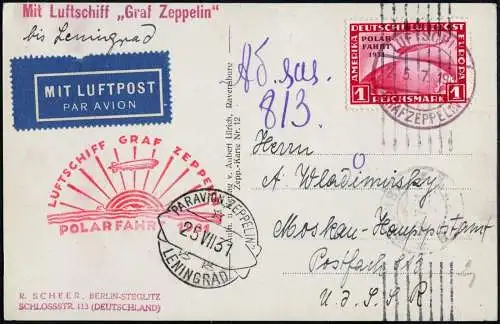 Mit Luftschiff „Graf Zeppelin"
bis Leningrad
MIT LUFTPOST
PAR AVION
LUFTSCHIFF GRAF ZEPPELIN
POLARFAHRT 1931
PAR AVION "ZEPPELIN"
25 VII 31
LENINGRAD
R. SCHEER, BERLIN-STEGLITZ
SCHLOSSSTR. 113 (DEUTSCHLAND)
v. Aubert Ullrich, Ravensburg
Zepp.-Karte Nr. 12
813
DEUTSCHE LUFTPOST
EUROPA
AMERIKA
POLAR
FAHRT
1931
1 REICHSMARK 1
LUFTSCHIFF
GRAF ZEPPELIN
Herrn
A Wladimirsky
Moskau-Hauptpostamt
Postfach
U.d.S.S.R